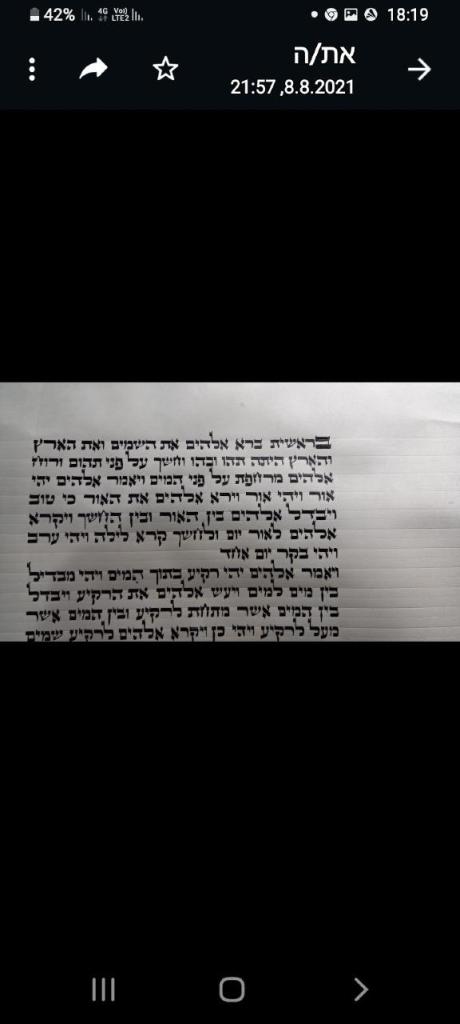 42% 4G Vo)) LTE2 18:19
את/ה
21:57 ,8.8.2021
בראשית ברא אלהים את השמים ואת הארץ
והארץ היתה תהו ובהו וחשך על פני תהום ורוח
אלהים מרחפת על פני המים ויאמר אלהים יהי
אור ויהי אור וירא אלהים את האור כי טוב
ויבדל אלהים בין האור ובין החשך ויקרא
אלהים לאור יום ולחשך קרא לילה ויהי ערב
ויהי בקר יום אחד
ויאמר אלהים יהי רקיע בתוך המים ויהי מבדיל
בין מים למים ויעש אלהים את הרקיע ויבדל
בין המים אשר מתחת לרקיע ובין המים אשר
מעל לרקיע ויהי כן ויקרא אלהים לרקיע שמים